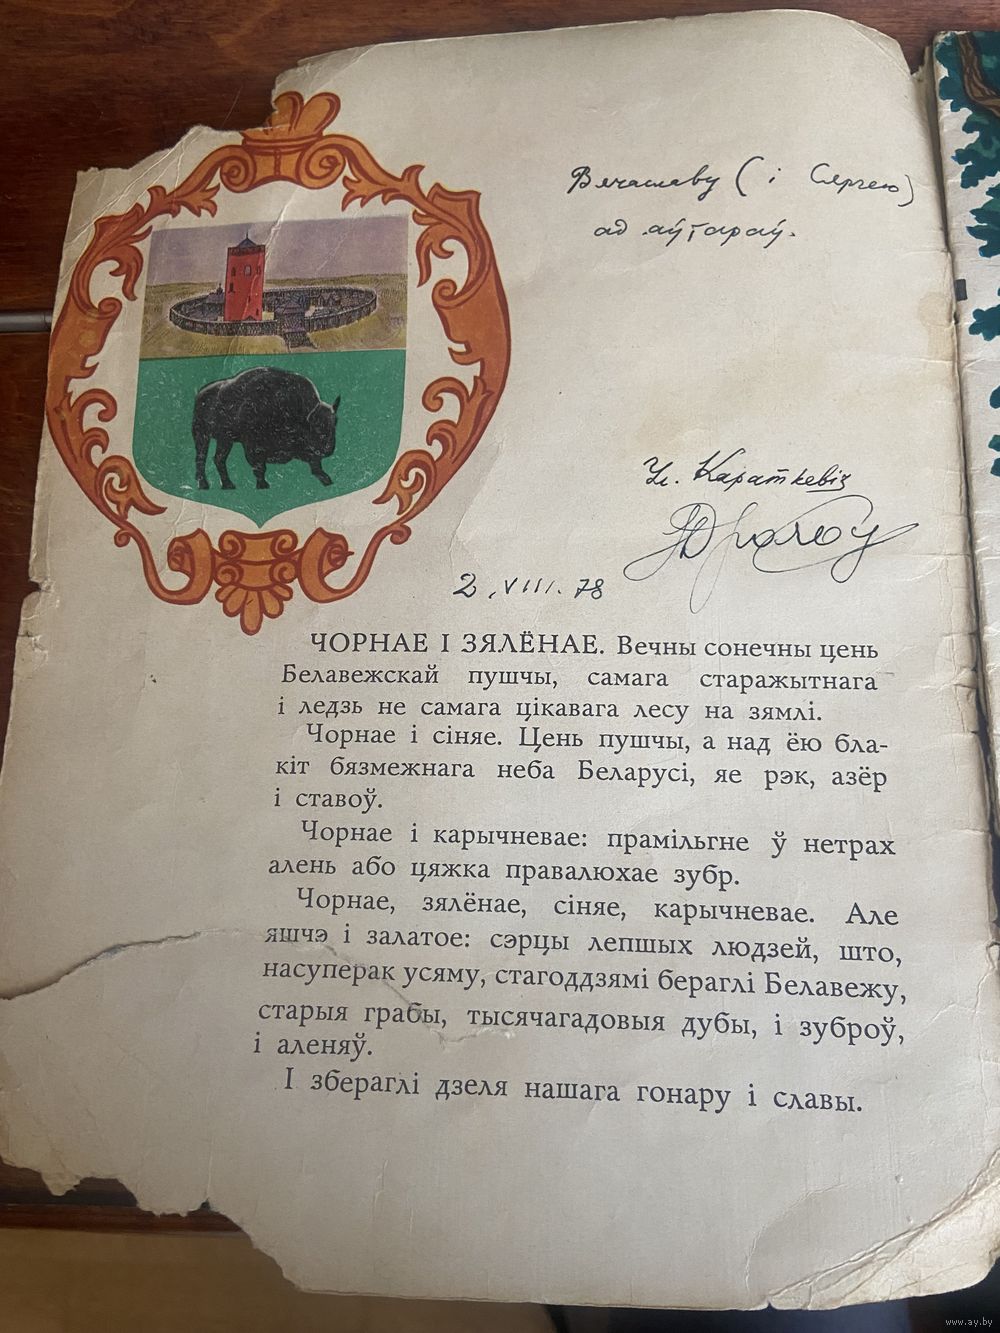 Вячаславу (і Сяргею)
ад аўтараў.
Ул. Караткевіч
2.VIII.78
ЧОРНАЕ І ЗЯЛЁНАЕ. Вечны сонечны цень
Белавежскай пушчы, самага старажытнага
і ледзь не самага цікавага лесу на зямлі.
Чорнае і сіняе. Цень пушчы, а над ёю бла-
кіт бязмежнага неба Беларусі, яе рэк, азёр
і ставоў.
Чорнае і карычневае: прамільгне ў нетрах
алень або цяжка правалюхае зубр.
Чорнае, зялёнае, сіняе, карычневае. Але
яшчэ і залатое: сэрцы лепшых людзей, што,
насуперак усяму, стагоддзямі бераглі Белавежу,
старыя грабы, тысячагадовыя дубы, і зуброў,
і аленяў.
І збераглі дзеля нашага гонару і славы.
www.ay.by